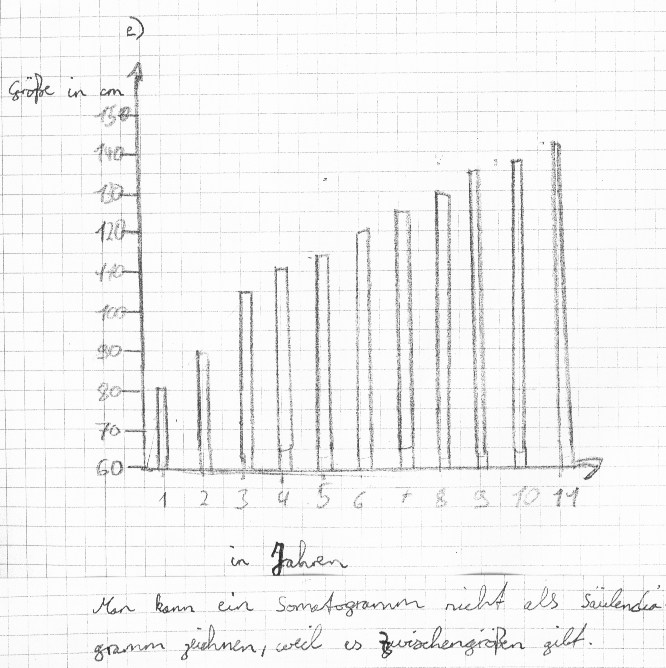 e)
Größe in cm
150
140
130
120
110
100
90
80
70
60
1 2 3 4 5 6 7 8 9 10 11
in Jahren
Man kann ein Somatogramm nicht als Säulendia
gramm zeichnen, weil es Zwischengrößen gibt.